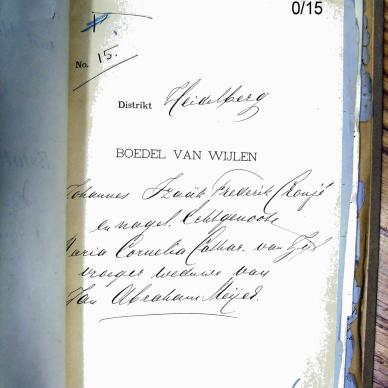 0/15
No. 15.
Distrikt Heidelberg
BOEDEL VAN WIJLEN
Johannes Izaäk Frederik Cronjé
en nagel. Echtgenoote
Maria Cornelia Cathar. van Zyl
vroeger weduwe van
Jan Abraham Meijer.